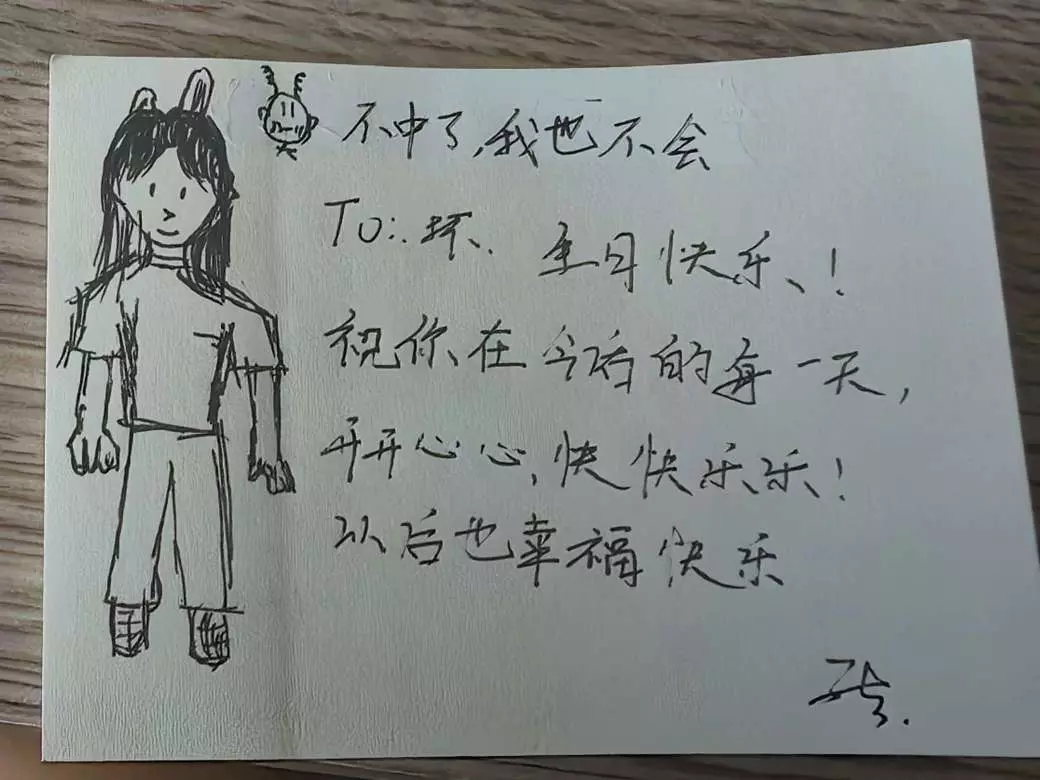 不中了,我也不会
To: 环、生日快乐、!
祝你在今后的每一天,
开开心心,快快乐乐!
以后也幸福快乐